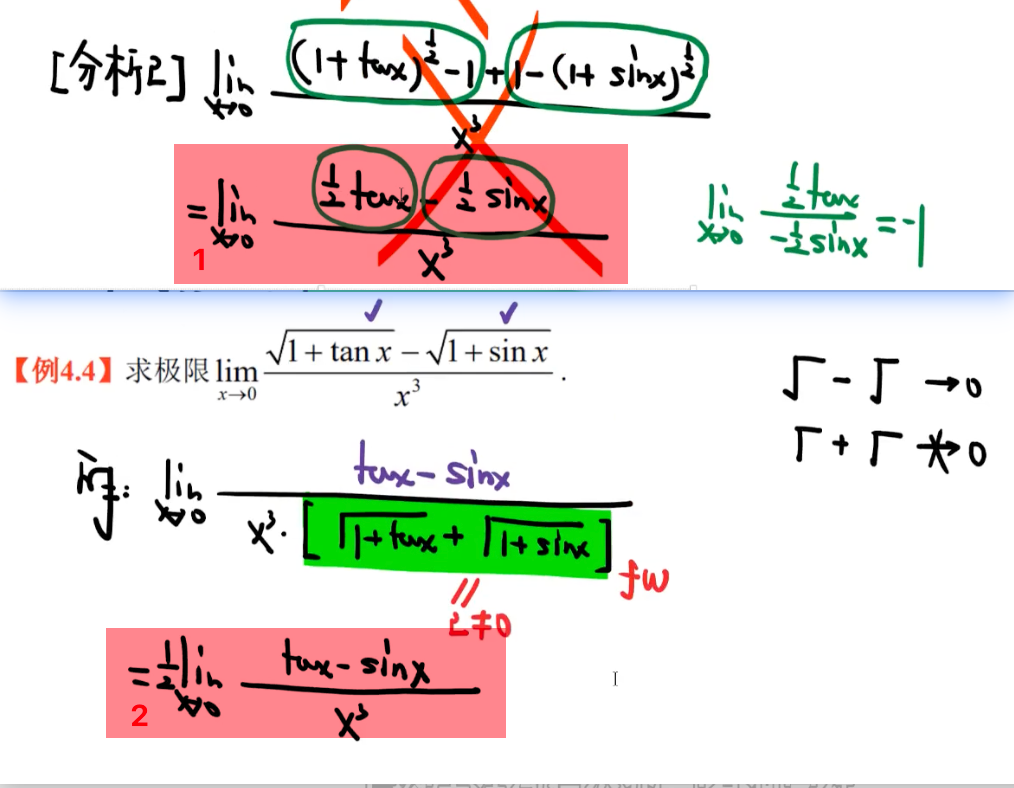 [分析2] lim x→0 ((1+tanx)^½ -1 + 1-(1+sinx)^½) / x³
= lim x→0 (½tanx - ½sinx) / x³
1
lim x→0 (½tanx) / (-½sinx) = -1
✓ ✓
【例4.4】求极限 lim x→0 (√(1+tan x) − √(1+sin x)) / x³ .
√ - √ →0
√ + √ ↛0
lim x→0 (tanx - sinx) / (x³·[√(1+tanx) + √(1+sinx)])
fw
2≠0
= ½ lim x→0 (tanx - sinx) / x³
2